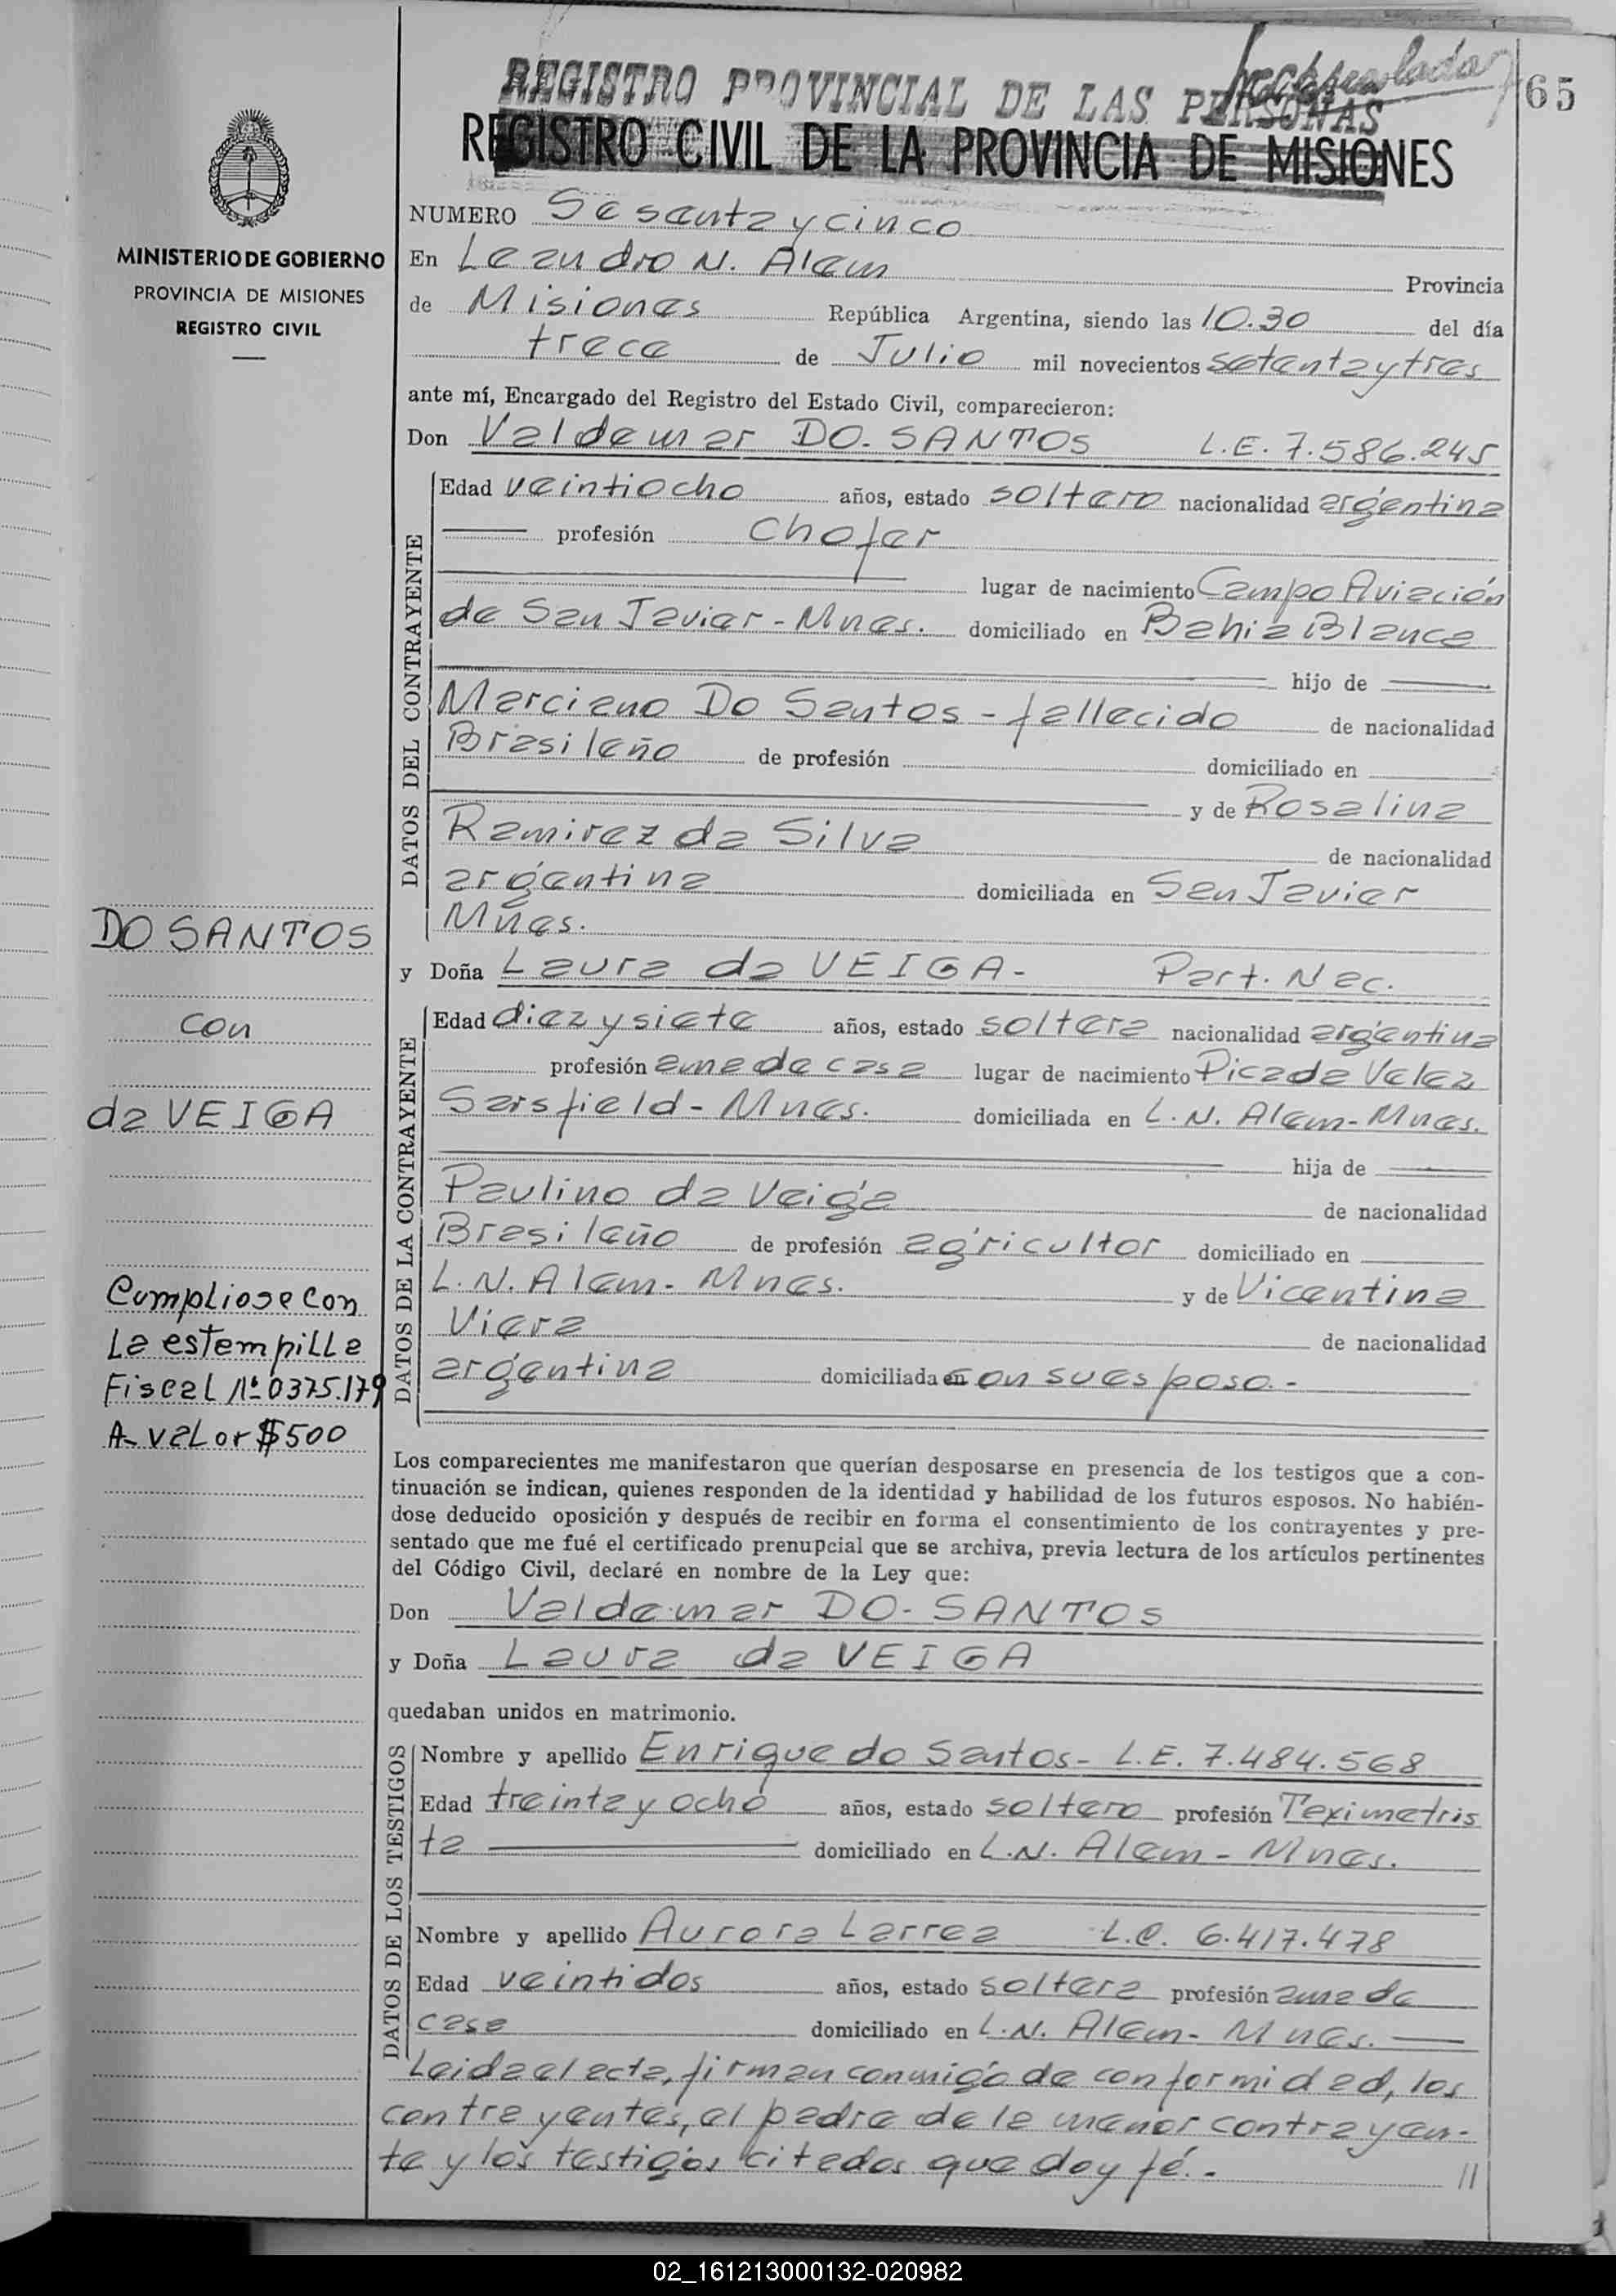 REGISTRO PROVINCIAL DE LAS PERSONAS
65
REGISTRO CIVIL DE LA PROVINCIA DE MISIONES
MINISTERIO DE GOBIERNO
PROVINCIA DE MISIONES
REGISTRO CIVIL
NUMERO Sesenta y cinco
En Leandro N. Alem Provincia
de Misiones República Argentina, siendo las 10.30 del día
trece de Julio mil novecientos setenta y tres
ante mí, Encargado del Registro del Estado Civil, comparecieron:
Don Valdemar DO-SANTOS L.E. 7.586.245
DATOS DEL CONTRAYENTE
Edad veintiocho años, estado soltero nacionalidad argentina
profesión Chofer
lugar de nacimiento Campo Aviación
de San Javier - Mnes. domiciliado en Bahia Blanca
hijo de
Marciano Do Santos - fallecido de nacionalidad
Brasileño de profesión domiciliado en
y de Rosalina
Ramirez da Silva de nacionalidad
argentina domiciliada en San Javier
Mnes.
DO SANTOS
con
da VEIGA
y Doña Laura da VEIGA- Part. Nac.
DATOS DE LA CONTRAYENTE
Edad diez y siete años, estado soltera nacionalidad argentina
profesión ama de casa lugar de nacimiento Picada Velez
Sarsfield - Mnes. domiciliada en L.N. Alem - Mnes.
hija de
Paulino da Veiga de nacionalidad
Brasileño de profesión agricultor domiciliado en
L.N. Alem - Mnes. y de Vicentina
Viera de nacionalidad
argentina domiciliada con su esposo.-
Cumpliose con
La estampilla
Fiscal Nº 0375.179
A- valor $500
Los comparecientes me manifestaron que querían desposarse en presencia de los testigos que a con-
tinuación se indican, quienes responden de la identidad y habilidad de los futuros esposos. No habién-
dose deducido oposición y después de recibir en forma el consentimiento de los contrayentes y pre-
sentado que me fué el certificado prenupcial que se archiva, previa lectura de los artículos pertinentes
del Código Civil, declaré en nombre de la Ley que:
Don Valdemar DO-SANTOS
y Doña Laura da VEIGA
quedaban unidos en matrimonio.
DATOS DE LOS TESTIGOS
Nombre y apellido Enrique do Santos- L.E. 7.484.568
Edad treinta y ocho años, estado soltero profesión Taximetris
ta domiciliado en L.N. Alem - Mnes.
Nombre y apellido Aurora Larrea L.C. 6.417.478
Edad veintidos años, estado soltera profesión ama de
casa domiciliado en L.N. Alem - Mnes.
Leida el acta, firman conmigo de conformidad, los
contrayentes, el padre de la menor contrayen-
te y los testigos citados que doy fé.- //
02_161213000132-020982